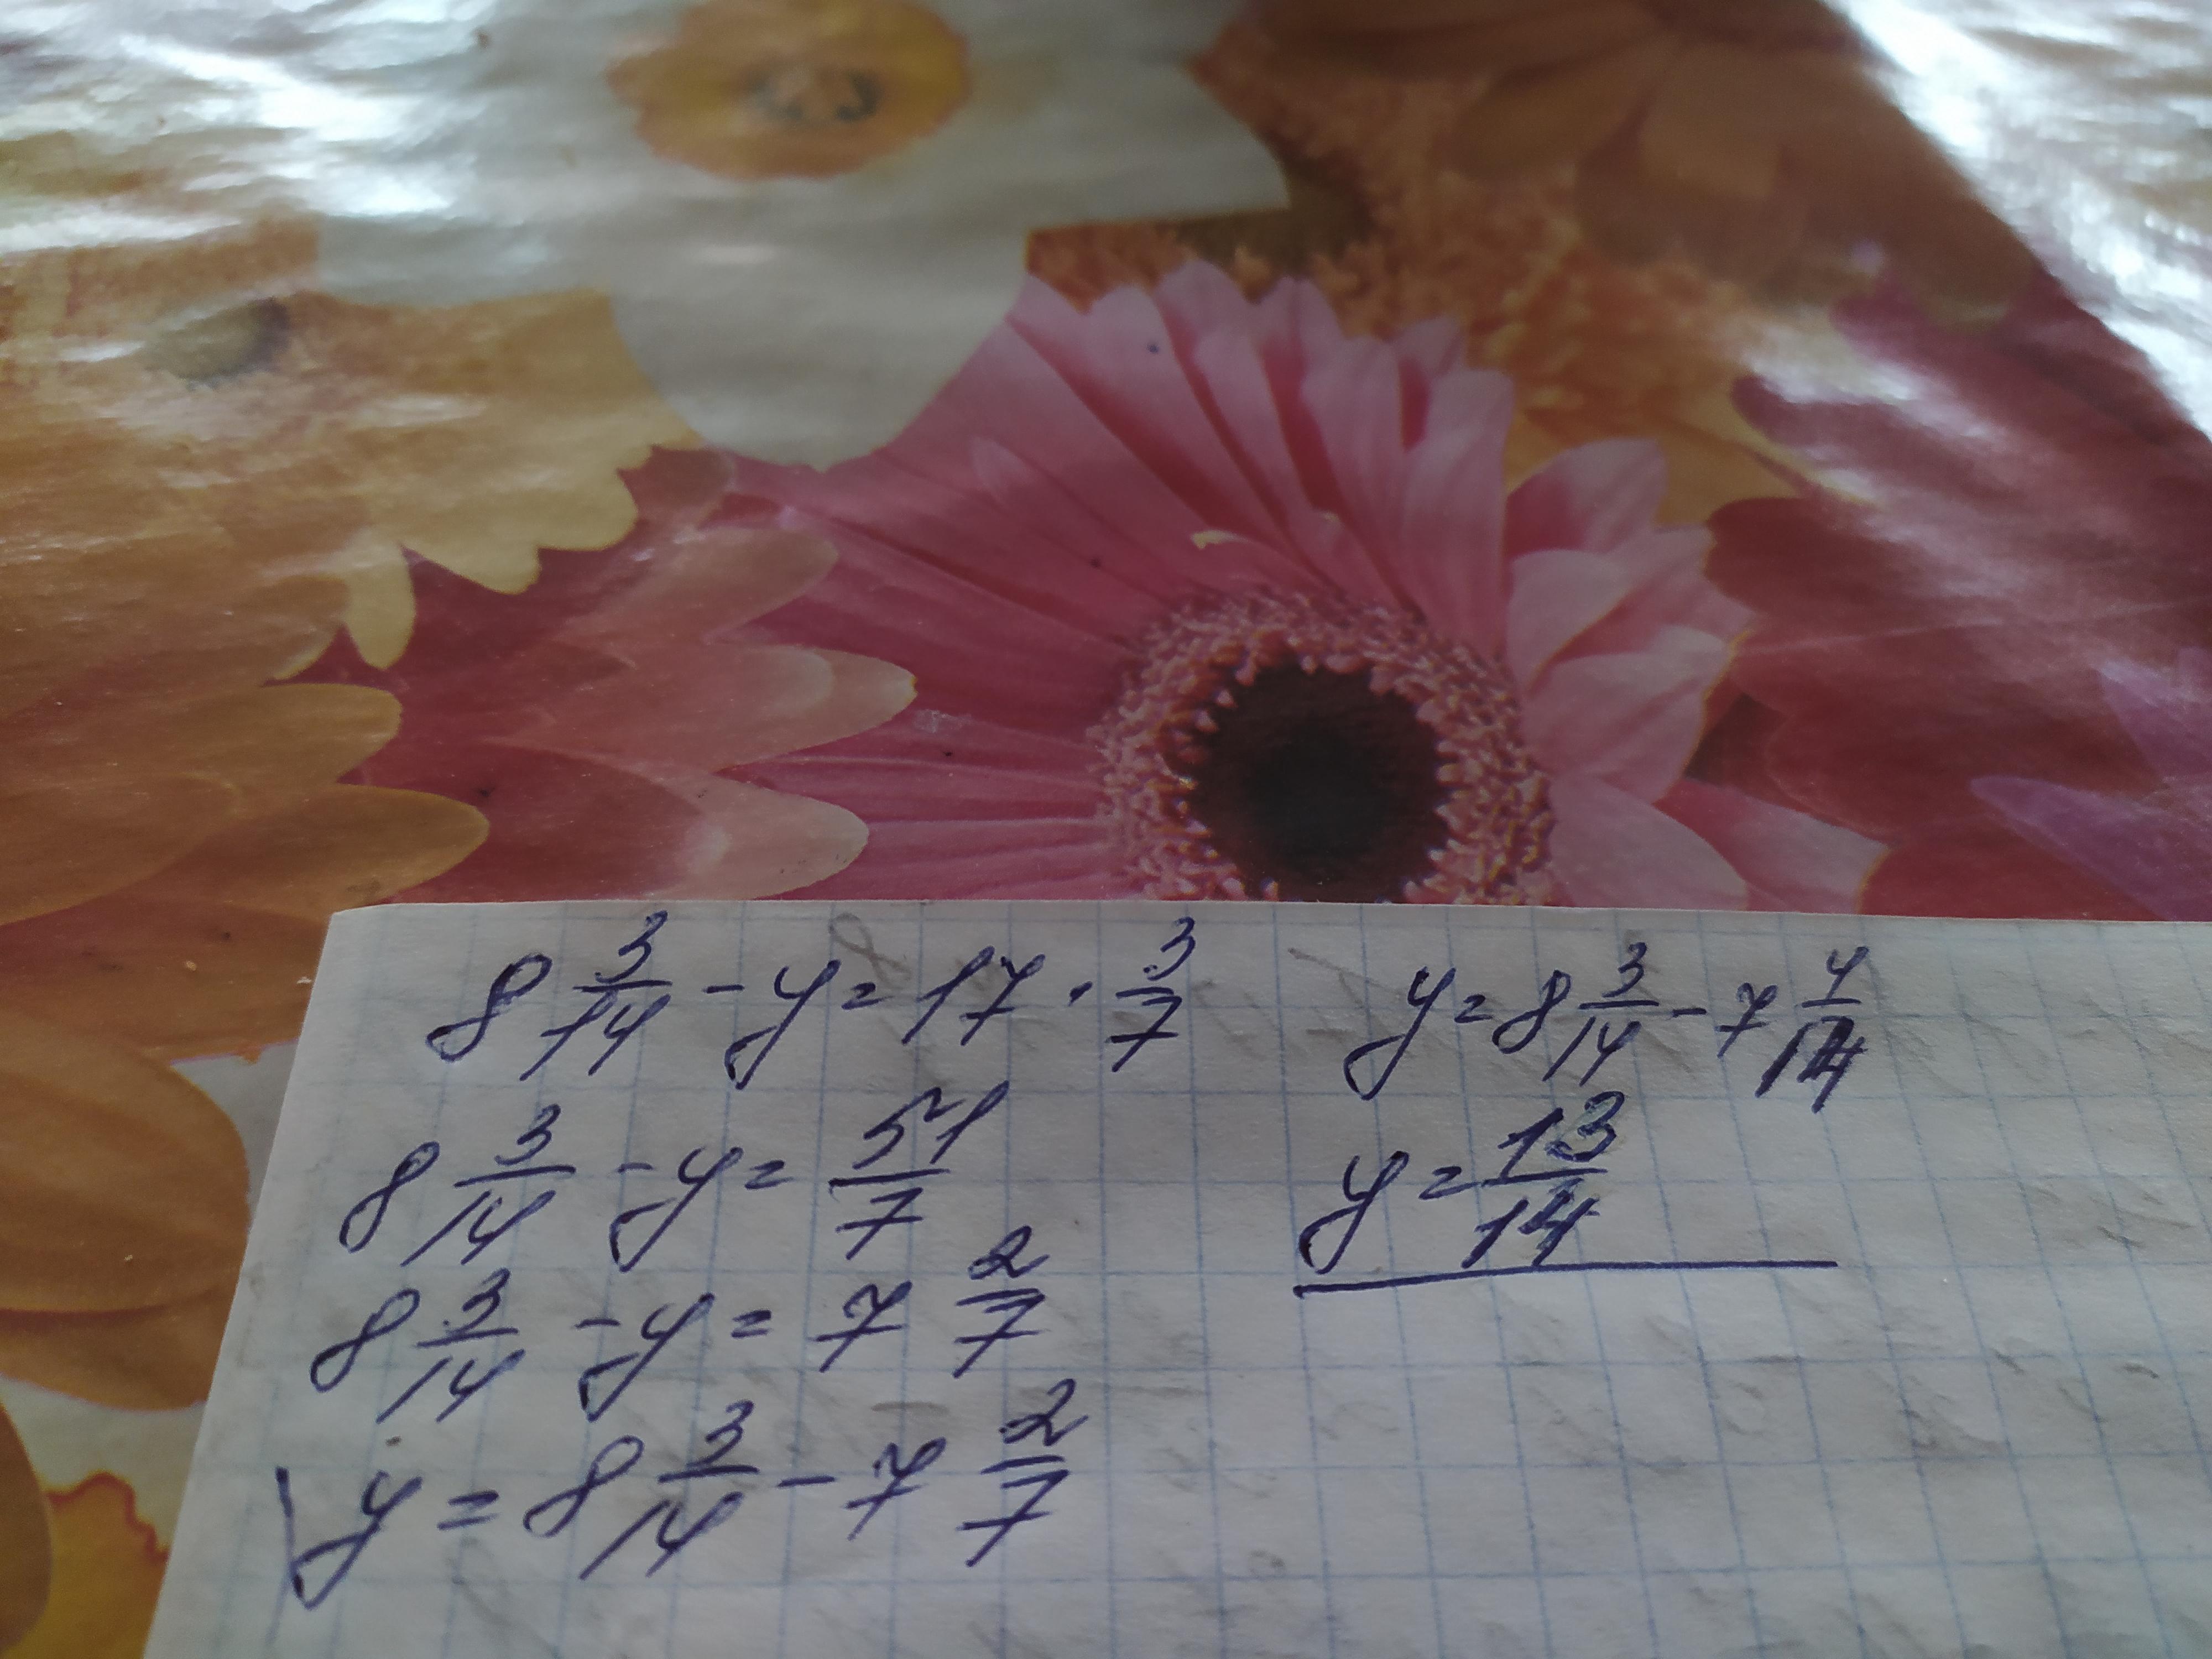 8 3/14 - y = 17 · 3/7
8 3/14 - y = 51/7
8 3/14 - y = 7 2/7
y = 8 3/14 - 7 2/7
y = 8 3/14 - 7 4/14
y = 13/14